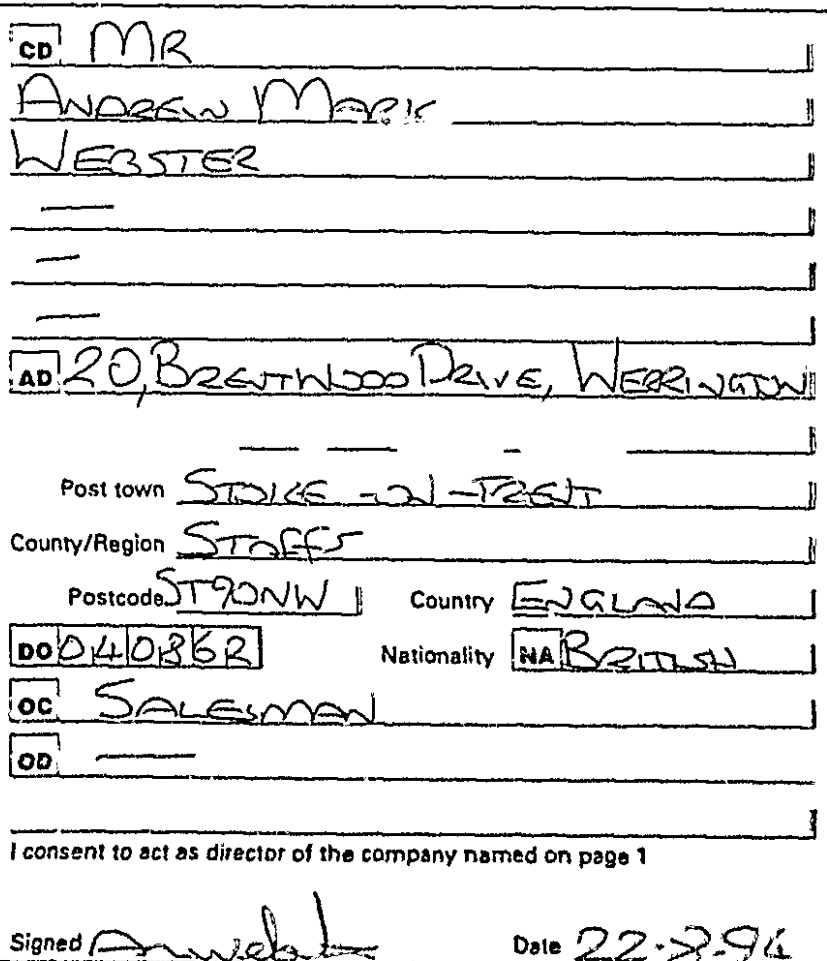 CD MR
ANDREW MARK
WEBSTER
—
—
—
AD 20, BRENTWOOD DRIVE, WERRINGTON
— — - —
Post town STOKE-ON-TRENT
County/Region STAFFS
Postcode ST9 0NW Country ENGLAND
DO Nationality NA BRITISH
OC SALESMAN
OD —
I consent to act as director of the company named on page 1
Signed Date